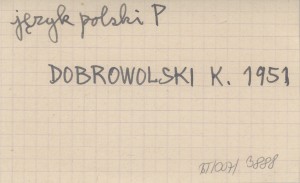 język polski P
DOBROWOLSKI K. 1951